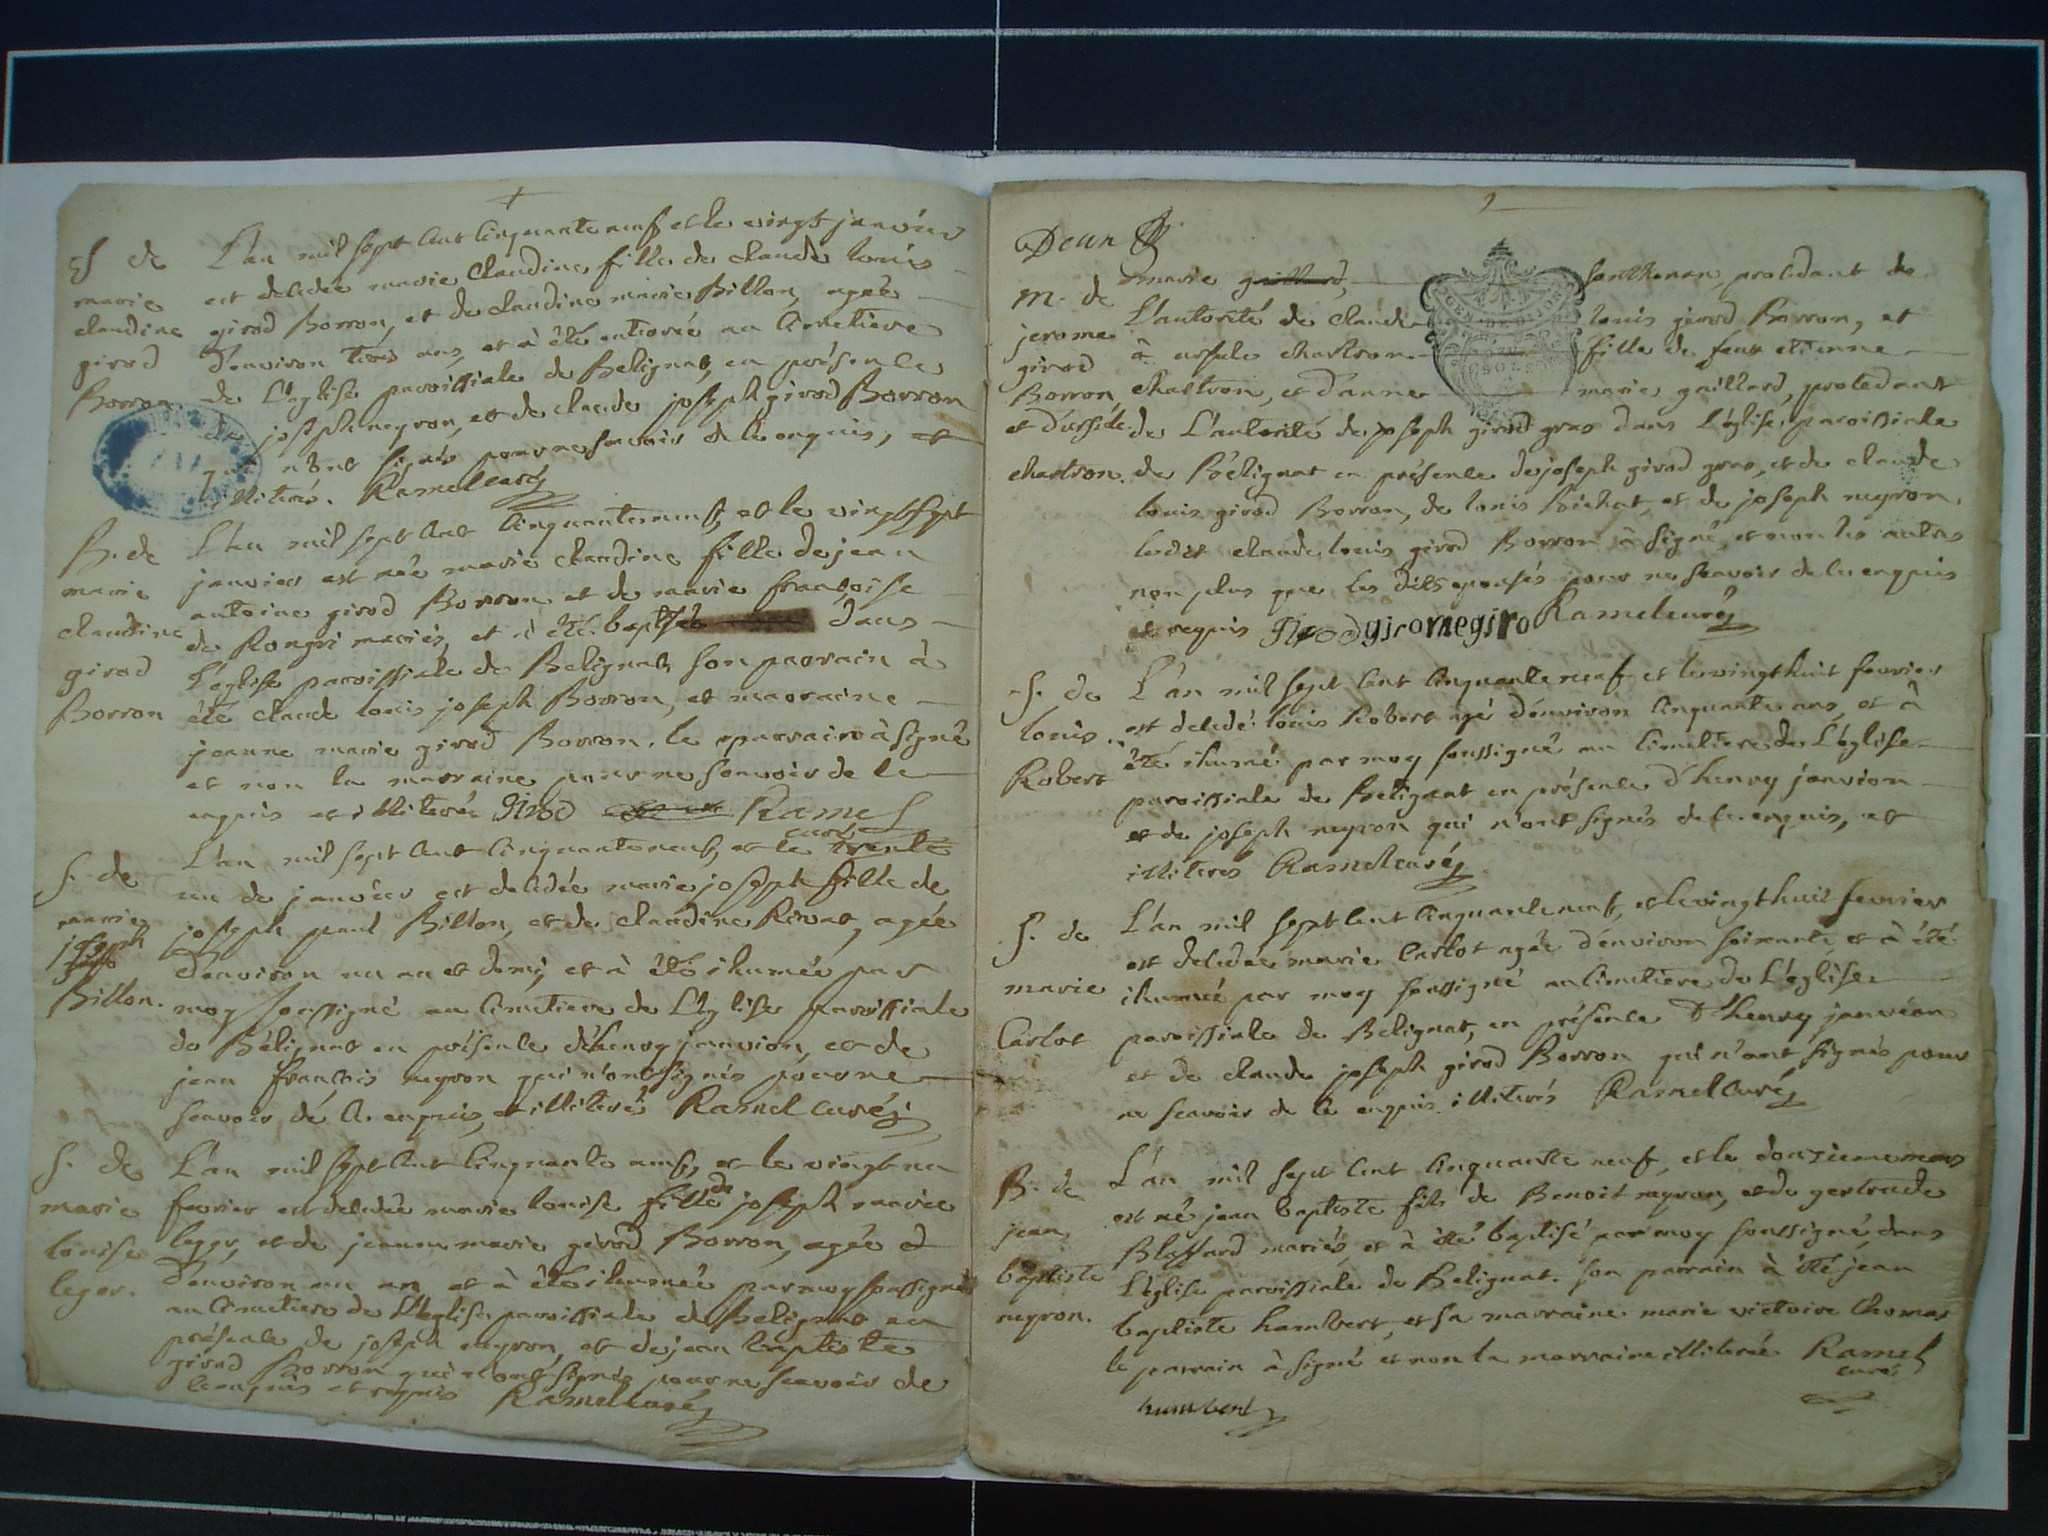 S de
marie
claudine
girod
Borron
L'an mil sept cent cinquante neuf et le vingt janvier
est decedée marie claudine fille de claude louis
girod Borron, et de claudine marie Billon, agée
d'environ trois ans, et à été enterrée au cimetiere
de L'église paroissiale de Belignat, en présence
de joseph neyron, et de claude joseph girod Borron
qui n'ont signés pour ne scavoir de ce enquis, et
illiterés. Ramel curé
B. de
marie
claudine
girod
Borron
L'an mil sept cent cinquante neuf, et le vingt sept
janvier est née marie claudine fille de jean
antoine girod Borron et de marie francoise
de Rongri mariés, et à été baptisée dans
L'église paroissiale de Belignat, son parrain à
été claude louis joseph Borron, et marraine
jeanne marie girod Borron. le parrain à signé
et non la marraine pour ne scavoir de ce
enquis et illiterée Girod Ramel
curé
S. de
marie
joseph
Billon.
L'an mil sept cent cinquante neuf, et le trente
un de janvier est decedée marie joseph fille de
joseph paul Billon, et de claudine Rivat, agée
d'environ un an et demi, et à été ihumée par
moy soussigné au cimetiere de L'église paroissiale
de Bélignat en présence d'henry janvion, et de
jean francois neyron qui n'ont signés pour ne
scavoir dé ce enquis, et illiterés Ramel curé
S. de
marie
louise
leger.
L'an mil sept cent cinquante neuf, et le vingt un
fevrier est decedée marie louise fille de joseph marie
leger, et de jeanne marie girod Borron, agée
d'environ un an et à été ihumée par moy soussigné
au cimetiere de L'église paroissiale de Belignat en
présence de joseph neyron, et de jean baptiste
girod Borron qui n'ont signés pour ne scavoir de
ce enquis et requis Ramel curé
Deun
M. de
jerome
girod
Borron
et d'ursule
chartron.
marie gaillard,
L'autorité de claude louis girod Borron, et
à ursule chartron fille de feux etienne
chartron, et d'anne marie gaillard, procedant
de L'autorité de joseph girod gras dans L'église paroissiale
de Bélignat en présence de joseph girod gras, et de claude
louis girod Borron, de louis Bichat, et de joseph neyron.
ledit claude louis girod Borron à signé, et non les autres
non plus que les dits epousés pour ne scavoir de ce enquis
et requis Girod giromegiro Ramel curé
S. de
louis
Robert
L'an mil sept cent cinquante neuf et le vingt huit fevrier
est decedé louis Robert agé d'environ cinquante ans, et à
été ihumé par moy soussigné au cimetiere de L'église
paroissiale de Belignat en présence d'henry janvion
et de joseph neyron qui n'ont signés de ce enquis, et
illiterés Ramel curé
S. de
marie
Carlot
L'an mil sept cent cinquante neuf, et le vingt huit fevrier
est decedée marie Carlot agée d'environ soixante et à été
ihumée par moy soussigné au cimetiere de L'église
paroissiale de Belignat, en présence d'henry janvion
et de claude joseph girod Borron qui n'ont signés pour
ne scavoir de ce enquis illiterés Ramel curé
B. de
jean
baptiste
neyron.
L'an mil sept cent cinquante neuf, et le douzieme mars
est né jean baptiste fils de Benoit neyron, et de gertrude
Blaffard mariés, et à été baptisé par moy soussigné, dans
L'église paroissiale de Belignat. son parrain à été jean
baptiste humbert, et sa marraine marie victoire Thomas
le parrain à signé et non la marraine illiterée Ramel
curé
humbert